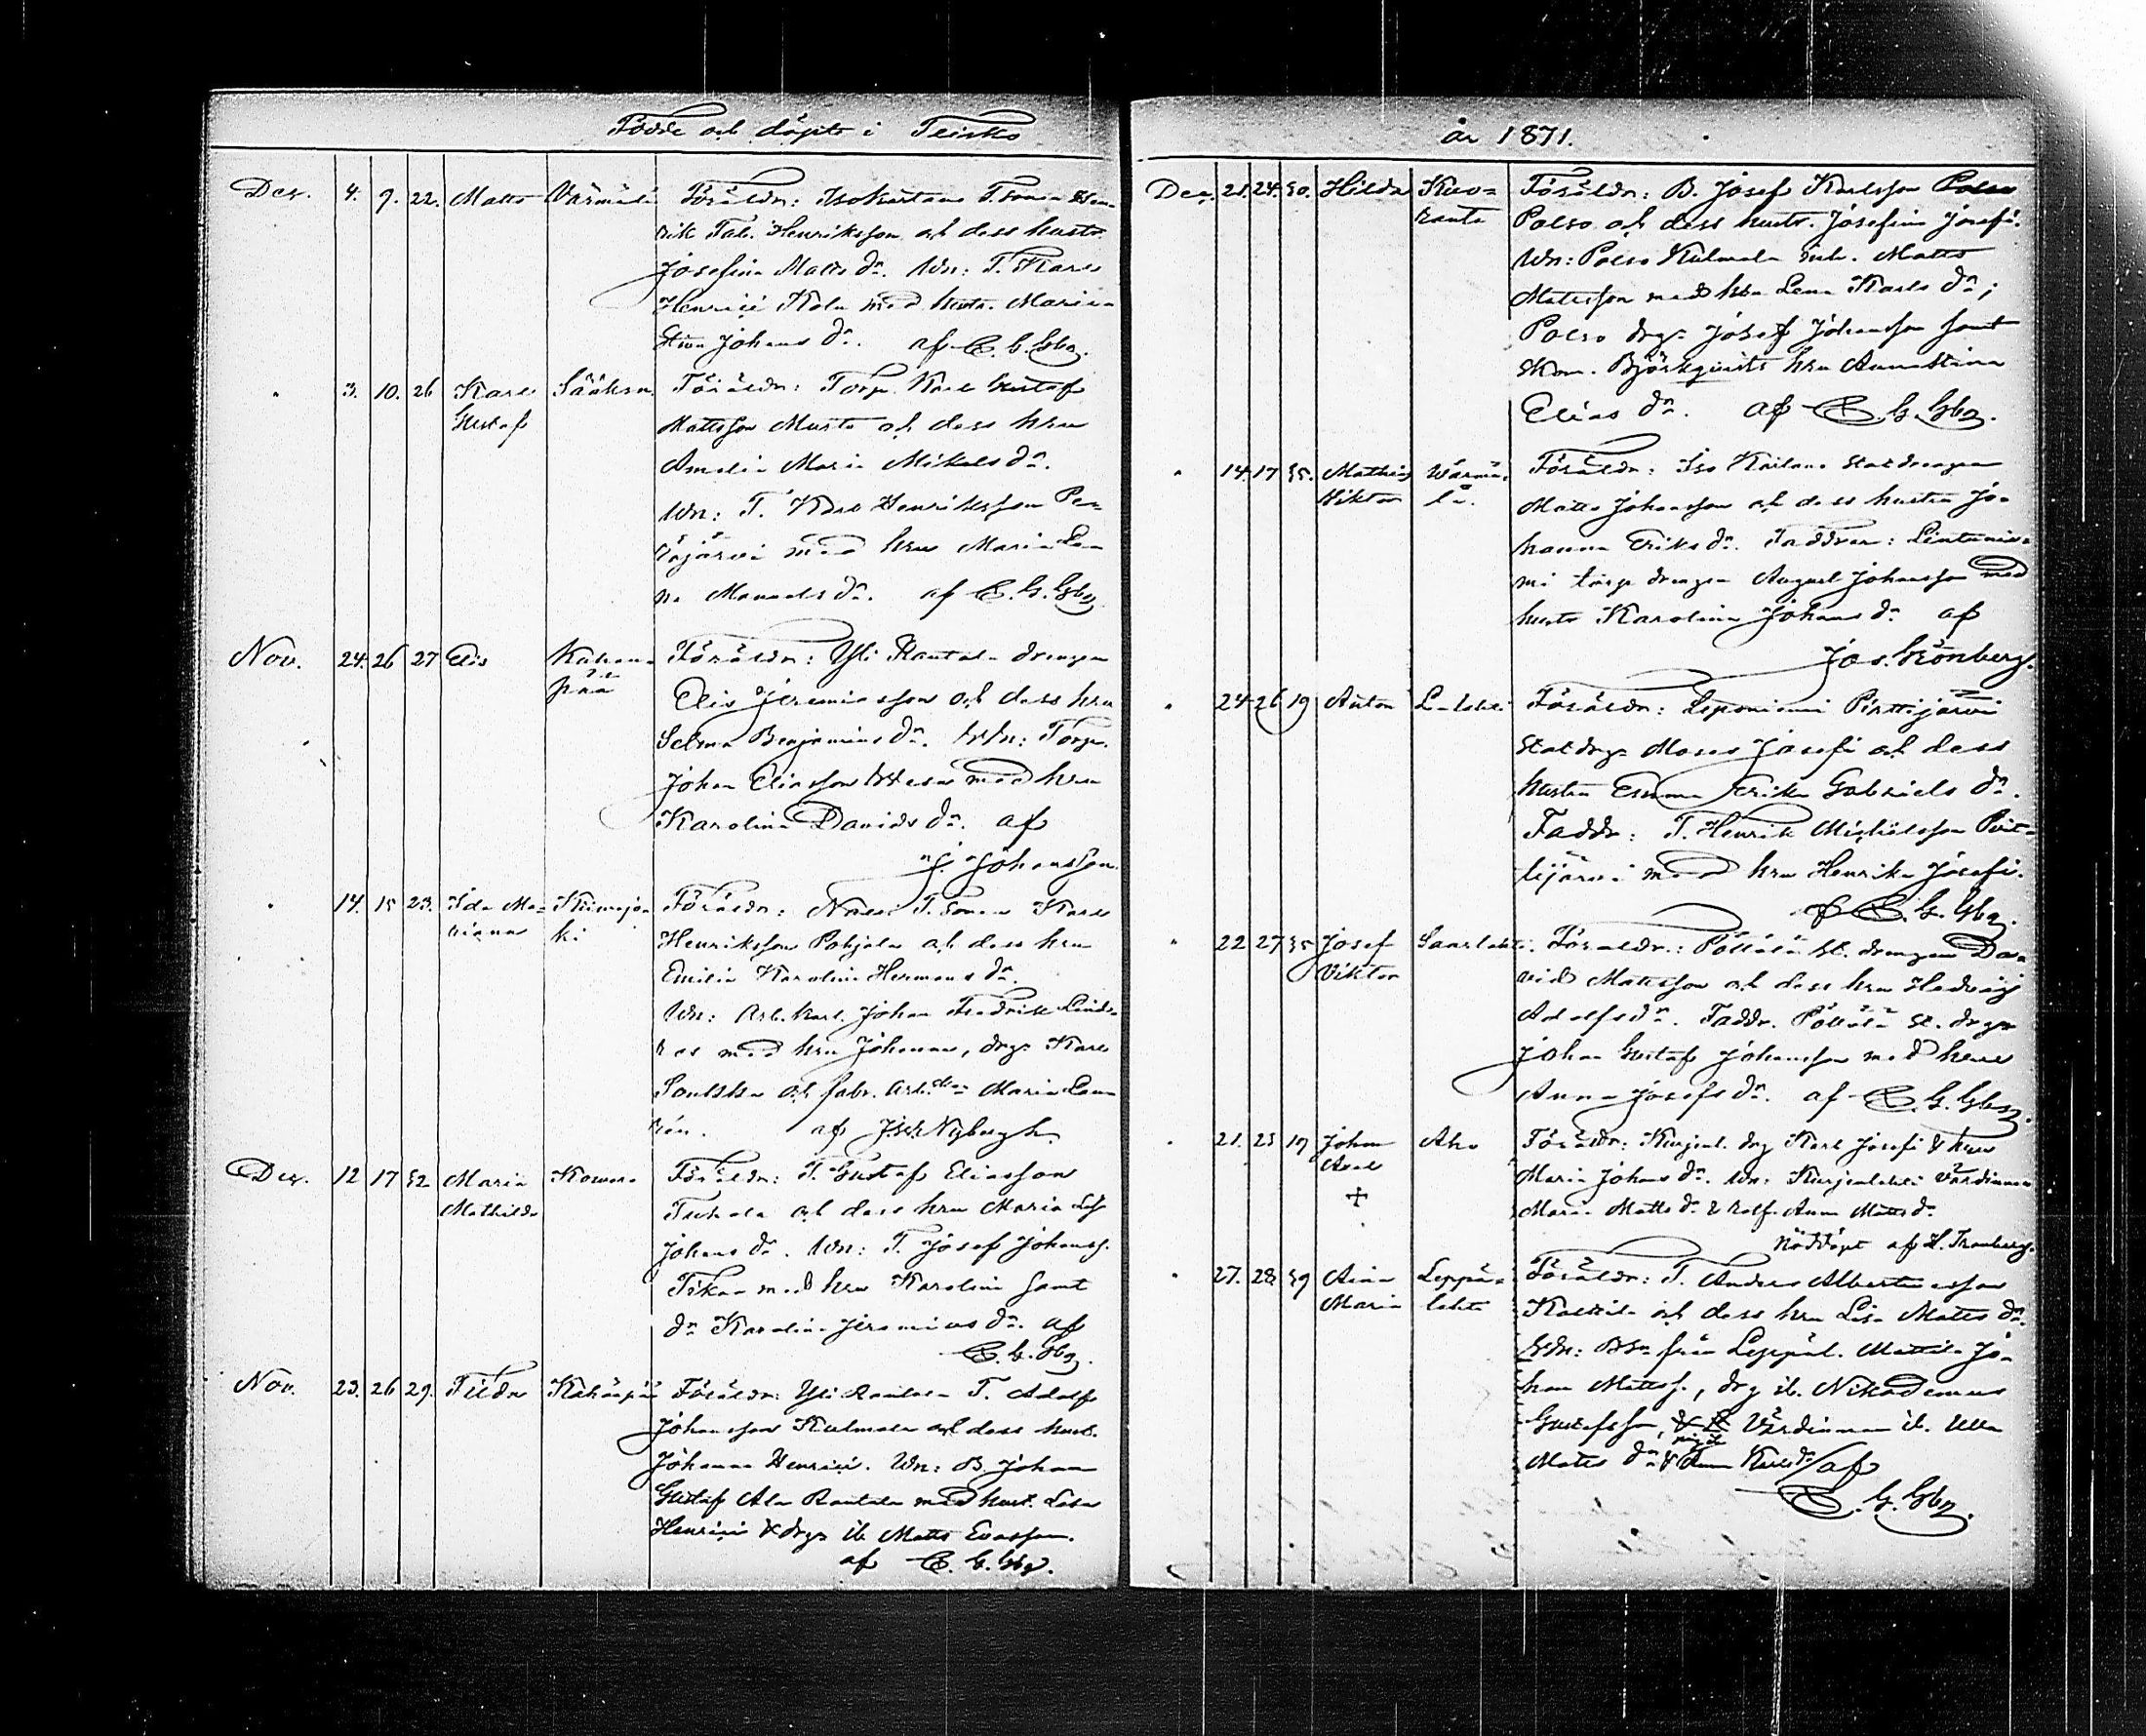 Födde och döpte i Teisko
Dec. 4. 9. 22. Matts Värmälä Föräldr: Isokartano T. sonen Hen-
rik Fab. Henriksson och dess hustr.
Josefina Matts dr. Wn: T. Karl
Henrici Kola med hustr. Maria
Stina Johans dr. af C. G. Gbg.
" 3. 10. 26 Karl Sääksn. Föräldr: Torp. Karl Gustaf
Gustaf Mattsson Musta och dess hru
Amalia Maria Mikels dr.
Wn: T. Karl Henriksson
med hru Maria Le-
na Manuels dr. af C. G. Gbg.
Nov. 24. 26 27 Elis Kahan- Föräldr: Yli Rantala drengen
pää Elis Jeremiasson och dess hru
Selma Benjamins dr. Wn: Torp.
Johan Eliasson med hru
Karolina Davids dr. af
J. Johansson.
" 14. 15 23. Ida Ma- Föräldr: T. sonen Karl
riana ki Henriksson Pohjola och dess hru
Emilia Karolina Hermans dr.
Wn: Arb. karl. Johan Fredrik Lind-
med hru Johanna, drg. Karl
och fabr. arb. Maria
af Nyberg
Dec. 12 17 32 Maria Kowero Föräldr: T. Gustaf Eliasson
Mathilda och dess hru Maria
Johans dr. Wn: T. Josef Johanss.
med hru Karolina samt
dr Karolina Jeremias dr. af
C. G. Gbg.
Nov. 23. 26 29. Tilda Kahanpää Föräldr: Yli Rantala T. Adolf
Johansson Kulmala och dess hust.
Johanna Henrici. Wn: B. Johan
Gustaf Ala Rantala med hust. Lena
Henrici & drg ib. Matts Evasson.
af C. G. Gbg.
år 1871.
Dec. 21. 24. 30. Hilda Kuo- Föräldr: B. Josef Karlsson
ranta Polso och dess hustr. Josefina Josefs.
Wn: Polso Kulmala inh. Matts
Mattsson med hru Lena Karls dr;
Polso drg Josef Johansson samt
Skom. Björkqvists hru Anna Stina
Elias dr. af C. G. Gbg.
" 14. 17 35. Mathias Wärmä- Föräldr: Iso Kartano statdrengen
Viktor lä. Matts Johansson och dess hustru Jo-
hanna Eriks dr. Faddrar: Lintunie-
mi torp drengen August Johansson med
hustr Karolina Johans dr af
Jos. Grönberg.
" 24 26 19 Anton Lahti Föräldr: Leponiemi Pirttijärvi
Statdrg Moses Josefi och dess
hustru Emma Erika Gabriels dr.
Faddr: T. Henrik Michelsson Pirt-
tijärvi med hru Henrika Josefs.
af C. G. Gbg.
" 22 27 35 Josef Saarlaht. Föräldr: Pöllölä st. drengen Da-
Viktor vid Mattsson och dess hru Hedvig
Adolfs dr. Faddr. Pöllölä st. drg
Johan Gustaf Johansson med hru
Anna Josefs dr. af C. G. Gbg.
" 21. 23 19 Johan Aho Föräldr: Kurjenl. drg Karl Josefi & hru
Axel Maria Johans dr. Wn: Kurjenlahti Värdinnan
Maria Matts dr & Anna Matts dr
Nöddöpt af H. Tranberg.
" 27. 28 39 Aina Leppä- Föräldr: T. Anders Albertinsson
Maria lahti och dess hru Lisa Matts dr.
Wn: från Leppäl. Mattila Jo-
han Mattss., drg ib. Nikodemus
Gustafsson, Värdinnan ib. Ulla
Matts dr & pig. ib. Anna Karls dr/af
C. G. Gbg.